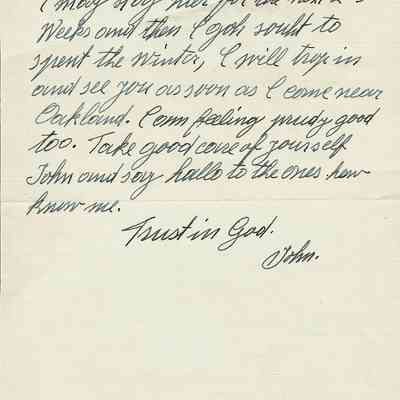 I may stay her for the next 2 3
Weeks and then I goh south to
spent the Winter, I will trop in
and see you as soon as I come near
Oakland. I am feeling prudy good
too. Take good care of yourself
John and say hallo to the ones how
know me.
Trust in God.
John.